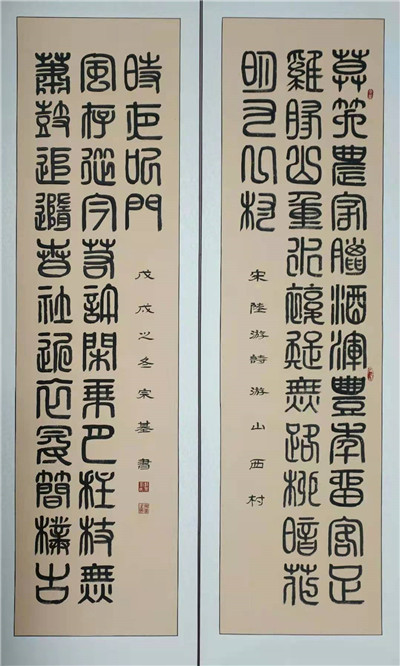 莫笑農家臘酒渾豐年留客足
雞豚山重水複疑無路柳暗花
明又一村
宋陸游詩游山西村
簫鼓追隨春社近衣冠簡樸古
風存從今若許閑乘月拄杖無
時夜叩門
戊戌之冬宋基書